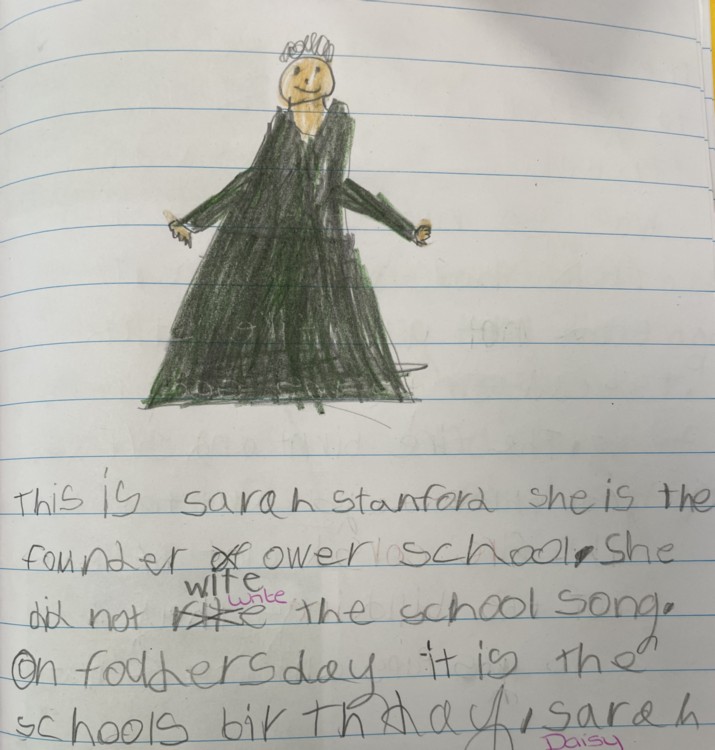 This is sarah stanford she is the
founder of ower school. She
wite
write
did not rite the school song.
On foddersday it is the
schools birthday, sarah
Daisy